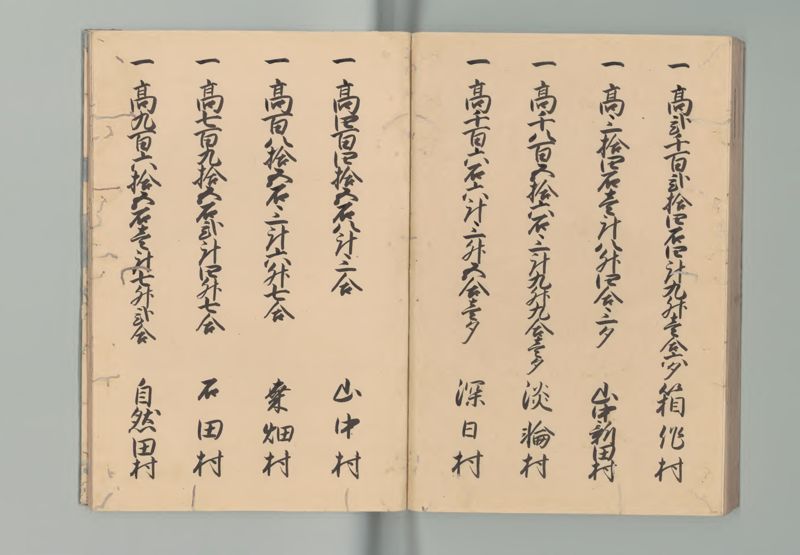 一高弐千百弐拾四石四斗九升壱合六夕 箱作村
一高三拾四石壱斗八升四合三夕 山中新田村
一高千八百五拾六石三斗九升九合壱夕 淡輪村
一高千百六石六斗二升五合壱夕 深日村
一高四百四拾五石八斗三合 山中村
一高百八拾五石三斗六升七合 桑畑村
一高七百九拾五石弐斗四升七合 石田村
一高九百六拾五石壱斗七升弐合 自然田村